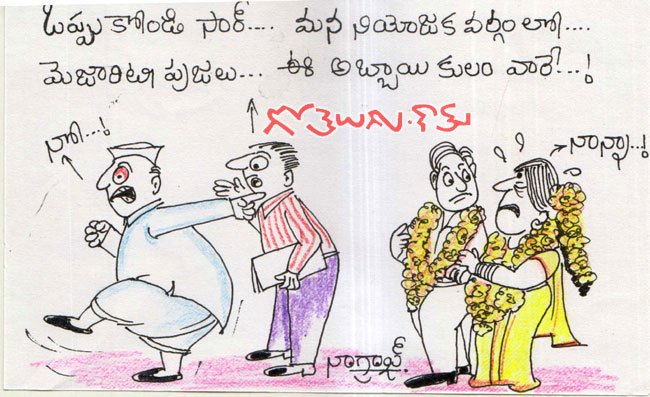 ఒప్పుకోండి సార్.... మన నియోజక వర్గంలో....
మెజారిటీ ప్రజలు... ఈ అబ్బాయి కులం వారే...!
గోతెలుగు.కామ్
నో...!
నాన్నా..!
నాగ్రాజ్.